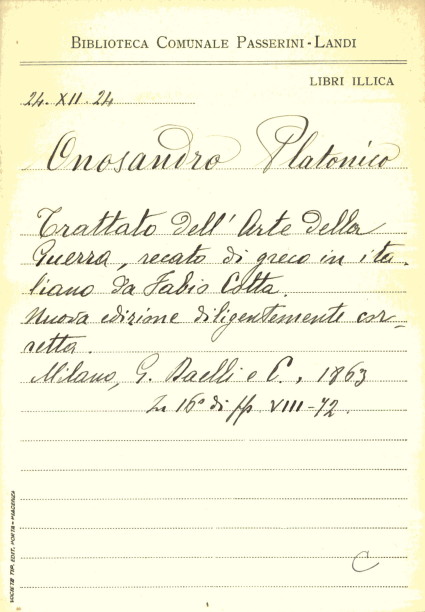 BIBLIOTECA COMUNALE PASSERINI-LANDI
LIBRI ILLICA
24. XII. 24
Onosandro Platonico
Trattato dell' Arte della
Guerra, recato di greco in ita-
liano da Fabio Cotta.
Nuova edizione diligentemente cor-
retta.
Milano, G. Daelli e C., 1863
In 16° di pp. VIII-72.
C
SOCIETÀ TIP. EDIT. PORTA - PIACENZA